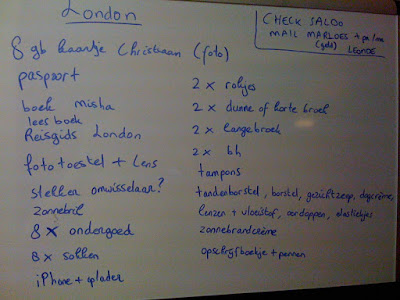 London
CHECK SALDO
MAIL MARLOES +
(geld)
LEONIE
8 gb kaartje Christiaan (foto)
paspoort
boek misha
leesboek
Reisgids London
fototoestel + lens
stekker omwisselaar?
zonnebril
8 x ondergoed
8 x sokken
iPhone + oplader
2 x rokjes
2 x dunne of korte broek
2 x lange broek
2 x bh
tampons
tandenborstel, borstel, gezichtzeep, dagcrème,
lenzen + vloeistof, oordoppen, elastiekjes
zonnebrandcrème
opschrijfboekje + pennen